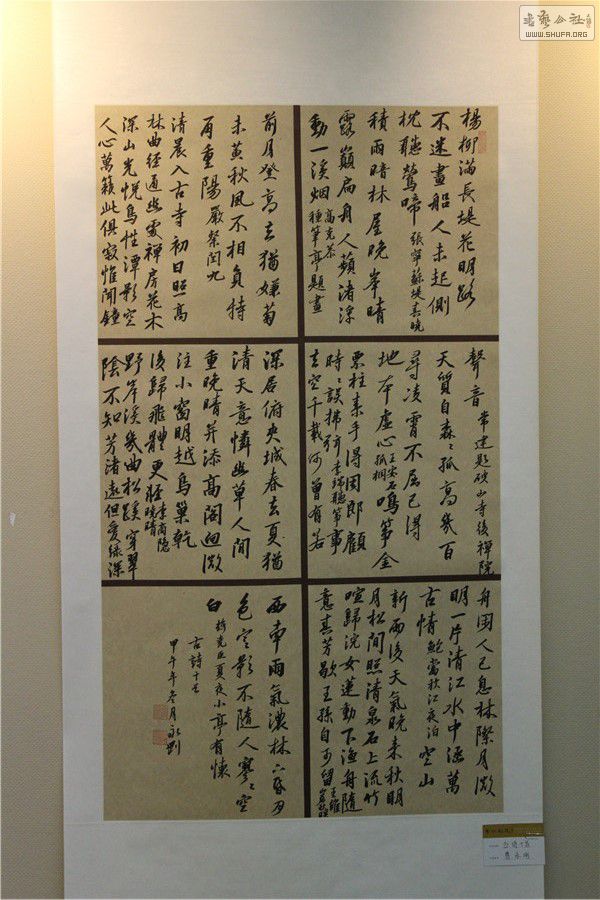 書藝公社
WWW.SHUFA.ORG
楊柳滿長堤花明路
不迷畫船人未起側
枕聽鶯啼 張寧蘇堤春曉
積雨暗林屋晚峯晴
露巔扁舟人蘋渚浮
動一溪烟 高克恭種筆亭題畫
前月登高去猶嫌菊
未黄秋風不相負特
再重陽 嚴粲閏九
清晨入古寺初日照高
林曲徑通幽處禪房花木
深山光悅鳥性潭影空
人心萬籟此俱寂惟聞鐘
聲音 常建題破山寺後禪院
天質自森〻孤高幾百
尋凌霄不屈己得
地本虛心 王安石孤桐 鳴箏金
粟柱素手得周郎顧
時〻誤拂弦 李端聽箏 事
去空千載何曾有若
深居俯夾城春去夏猶
清天意憐幽草人間
重晚晴并添高閣迥微
注小窗明越鳥巢乾
後歸飛體更輕 李商隱晚晴
野岸溪幾曲松蹊穿翠
陰不知芳渚遠但愛綠深
舟園人已息林際月微
明一片清江水中涵萬
古情 鮑當秋江夜泊 空山
新雨後天氣晚來秋明
月松間照清泉石上流竹
喧歸浣女蓮動下漁舟隨
意春芳歇王孫自可留 王維
西南雨氣濃林 月
色空影不隨人寥〻空
白 夏夜小亭有懷
古詩十首
甲午年冬月永剛
古詩十首
永剛